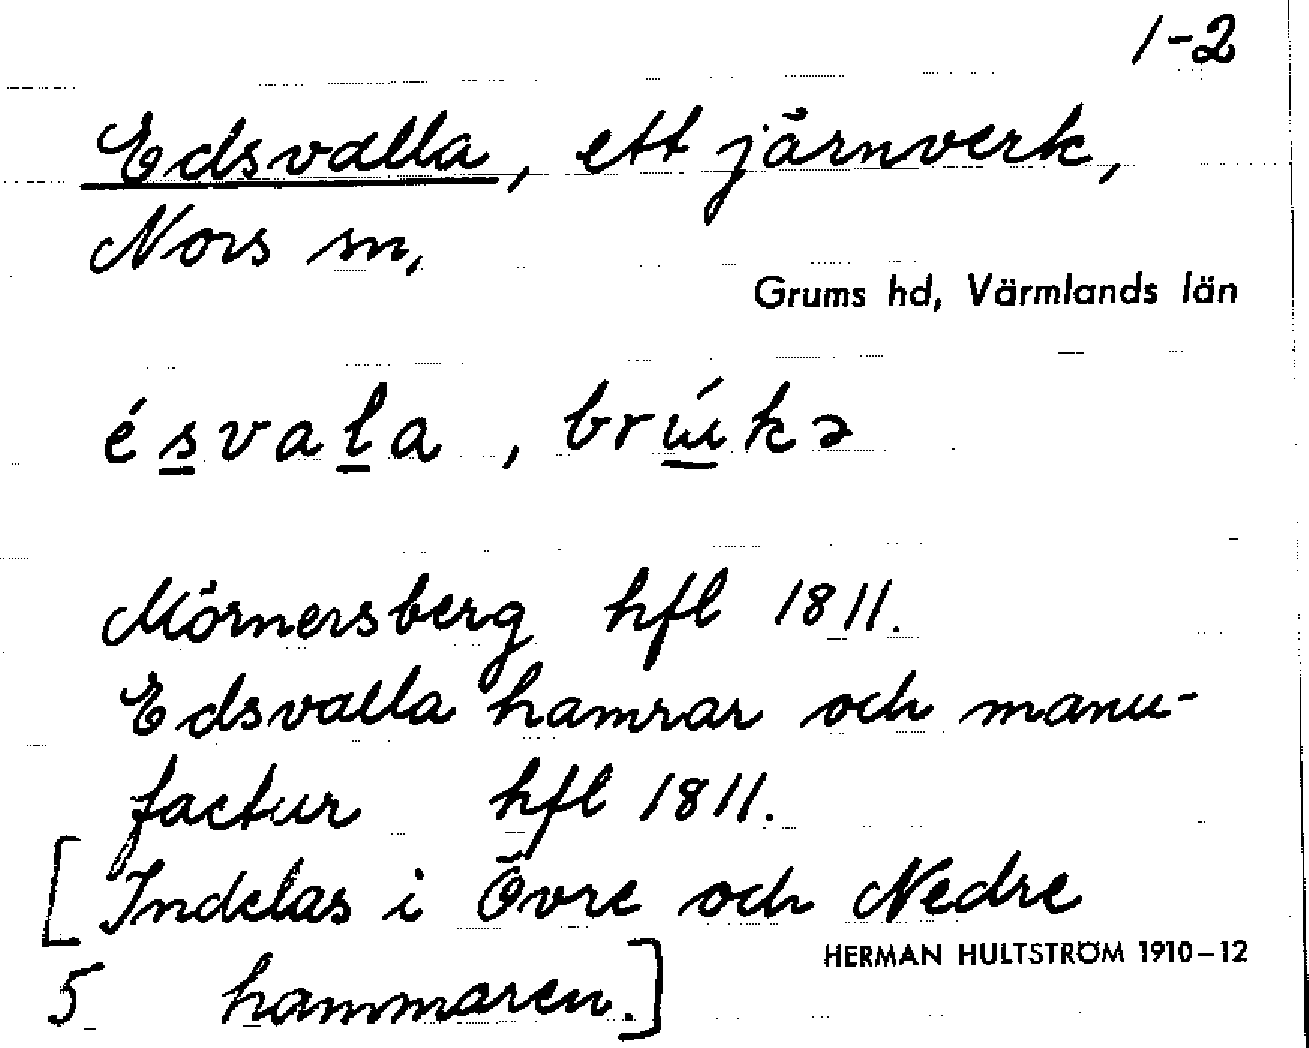 1-2
Edsvalla, ett järnverk,
Nors sn,
Grums hd, Värmlands län
ésvala, brɯ́kə
Mörnersberg hfl 1811.
Edsvalla hamrar och manu-
factur hfl 1811.
[Indelas i Övre och Nedre
HERMAN HULTSTRÖM 1910-12
5 hammaren.]